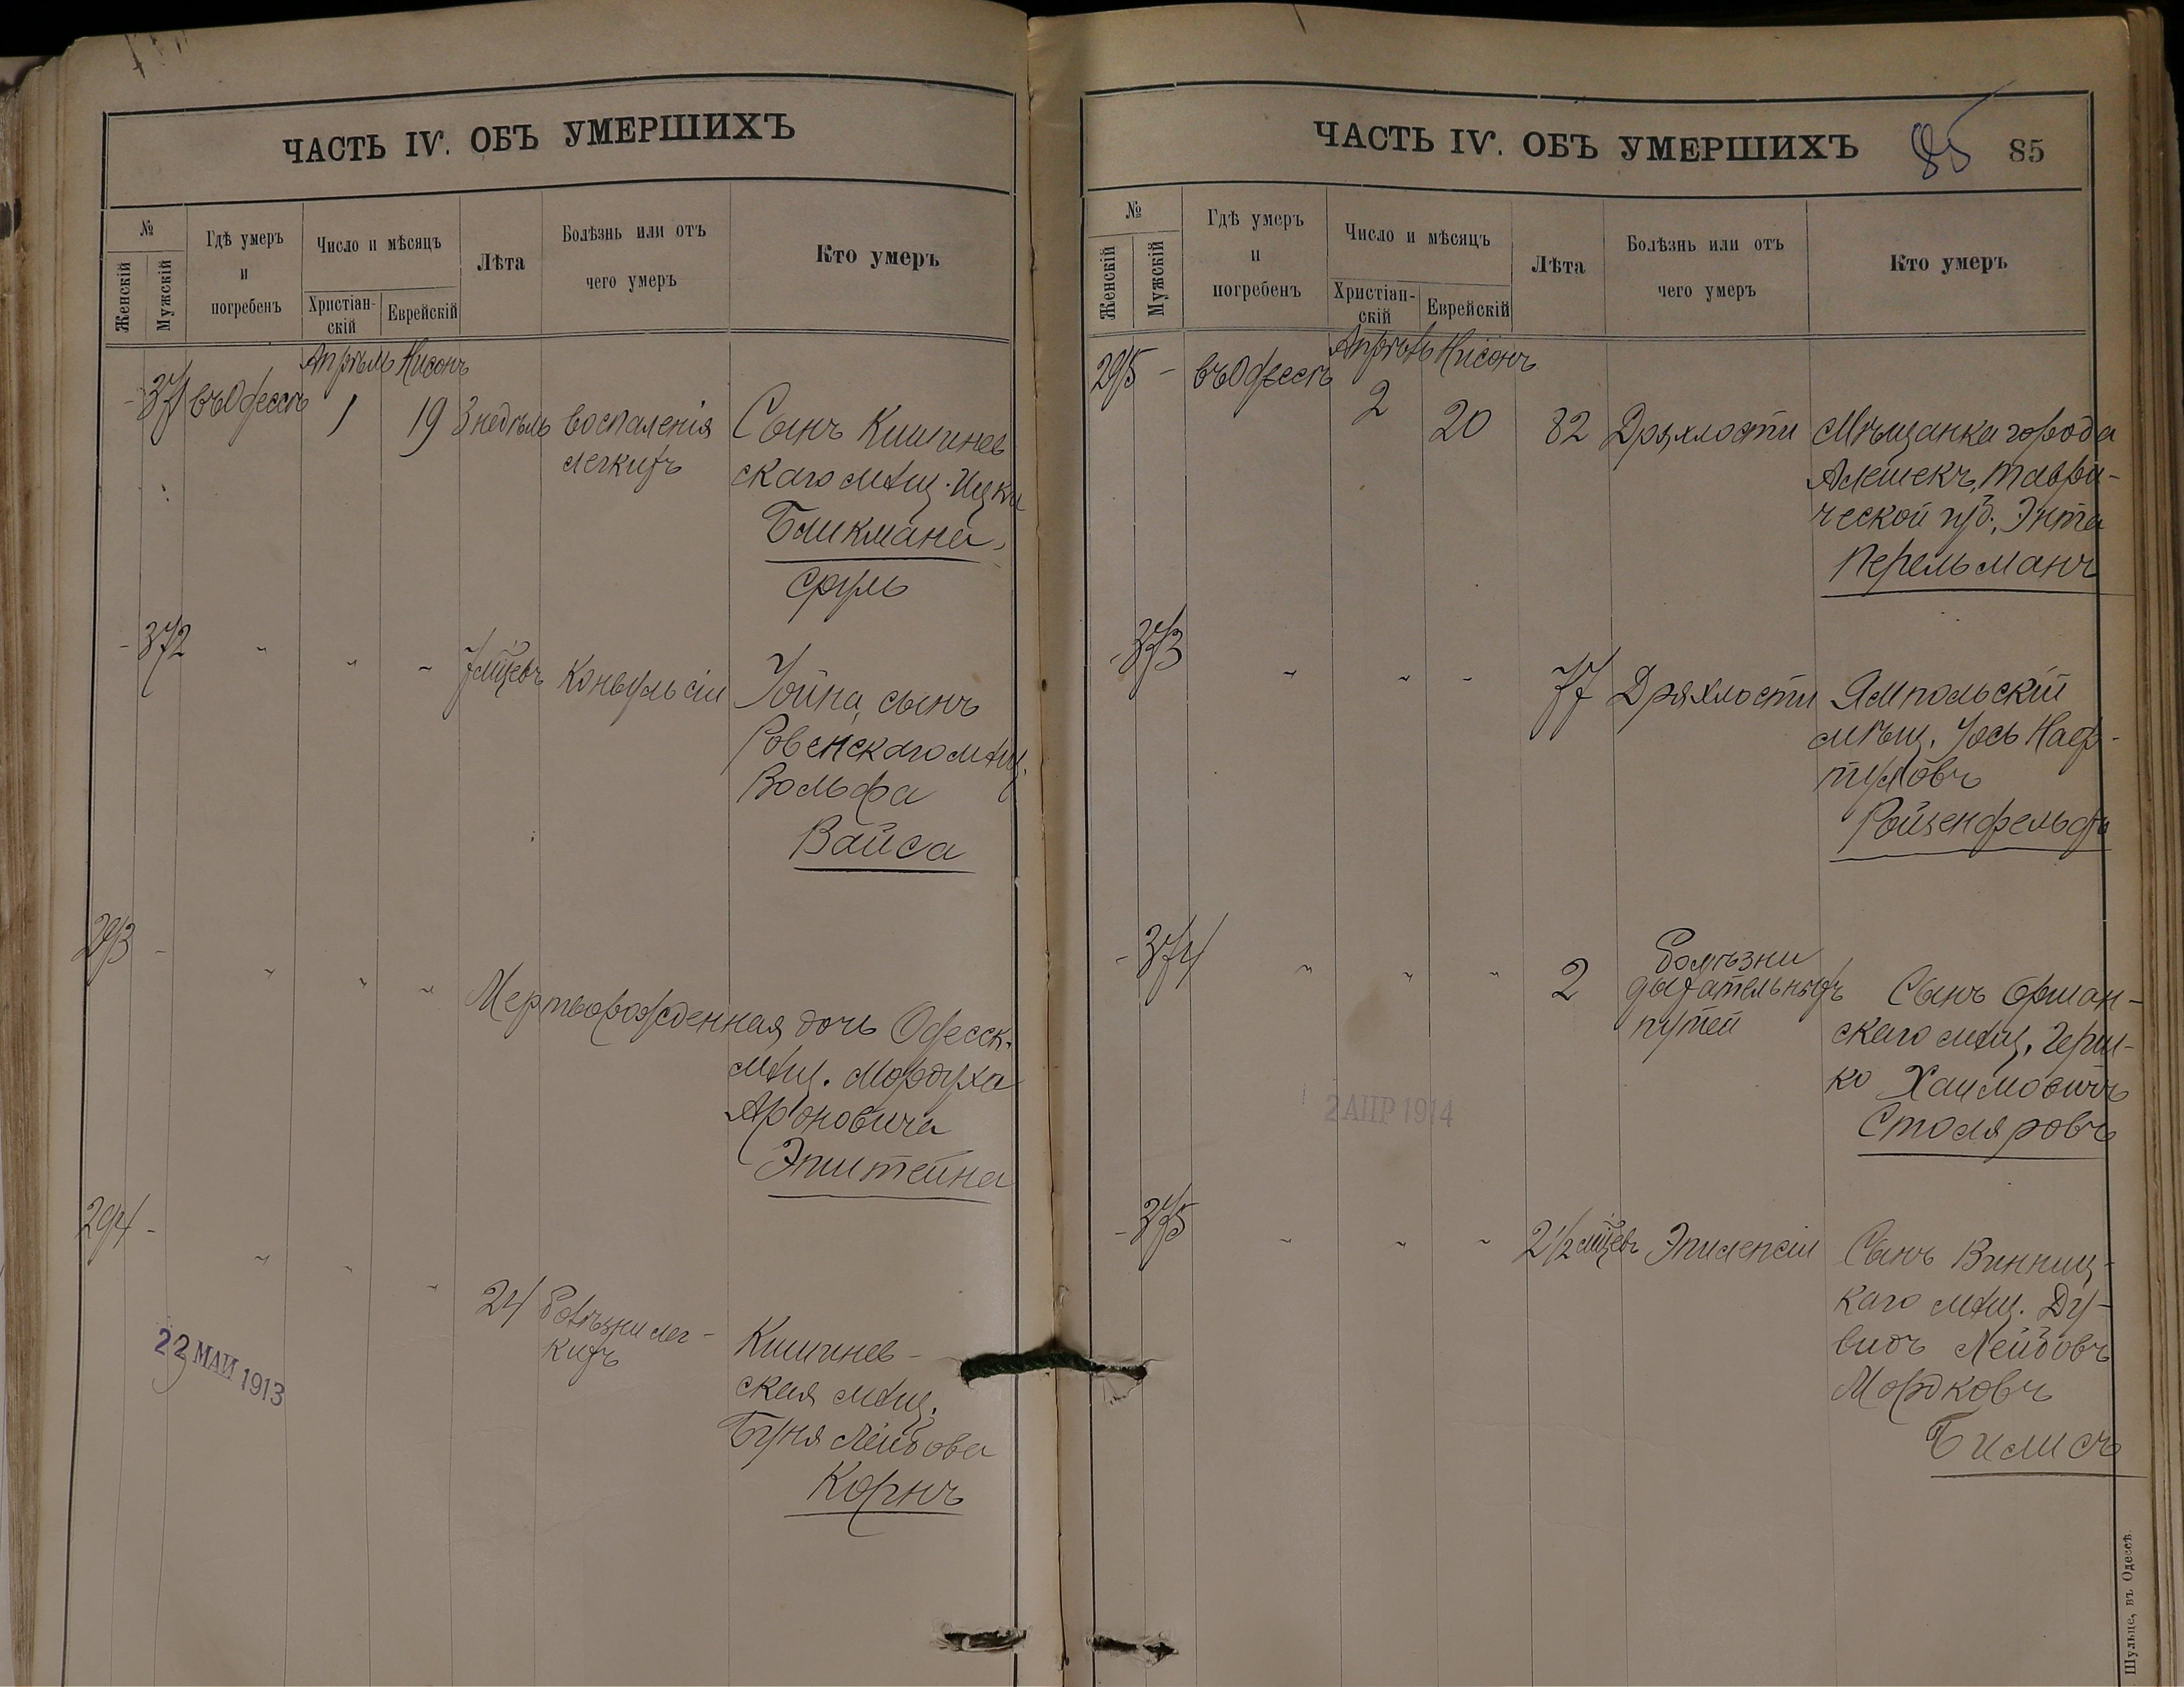 ЧАСТЬ IV. ОБЪ УМЕРШИХЪ
№
Женскій
Мужскій
Гдѣ умеръ
и
погребенъ
Число и мѣсяцъ
Христіан-
скій
Еврейскій
Лѣта
Болѣзнь или отъ
чего умеръ
Кто умеръ
Апрѣль Нисонъ
- 371 въ Одессѣ 1 19 3 недѣль воспаленія Сынъ Кишинев
легкихъ скаго мѣщ. Ицки
Бликмана,
Сруль
- 372 " " " 7 мѣцевъ Конвульсіи Іойна, сынъ
Ровенскаго мѣщ.
Вольфа
Вайса
293 - " " " Мертворожденная дочь Одесск.
мѣщ. Мордуха
Ароновича
Эпштейна
294 - " " " 24 Болѣзни лег-
кихъ Кишинев-
ская мѣщ.
Буня Лейбова
Корнъ
22 МАЙ 1913
ЧАСТЬ IV. ОБЪ УМЕРШИХЪ 85 85
№
Женскій
Мужскій
Гдѣ умеръ
и
погребенъ
Число и мѣсяцъ
Христіан-
скій
Еврейскій
Лѣта
Болѣзнь или отъ
чего умеръ
Кто умеръ
Апрѣль Нисонъ
295 - въ Одессѣ 2 20 82 Дряхлости Мѣщанка города
Алешекъ, Таври-
ческой губ. Энта
Перельманъ
- 373 " " " 77 Дряхлости Ямпольскій
мѣщ. Іось Наф-
туловъ
Ройзенфельдъ
- 374 " " " 2 Болѣзни
дыхательныхъ Сынъ Оршан-
путей скаго мѣщ. Герш-
ко Хаимовичъ
Столяровъ
2 АПР 1914
- 375 " " " 2 1/2 мѣцевъ Эпилепсіи Сынъ Винниц-
каго мѣщ. Ду-
видъ Лейбовъ
Мордковъ
Билисъ
Шульце, въ Одессѣ.